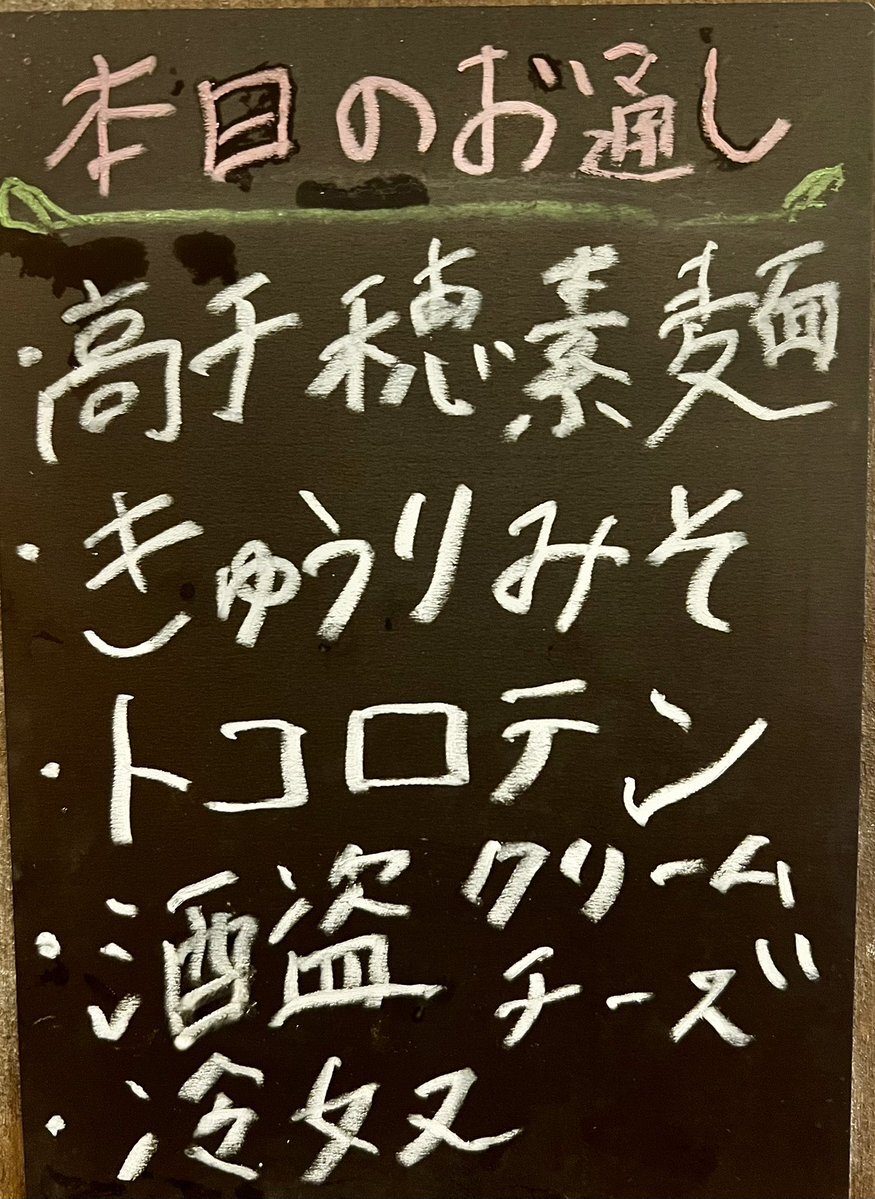 本日のお通し
・高千穂素麺
・きゅうりみそ
・トコロテン
・酒盗クリーム
チーズ
・冷奴